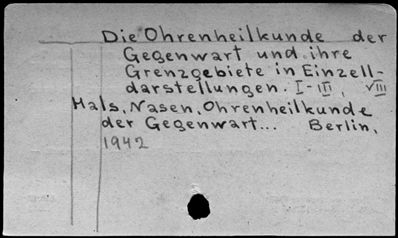 Die Ohrenheilkunde der
Gegenwart und ihre
Grenzgebiete in Einzell-
darstellungen. I-III, VIII
Hals, Nasen, Ohrenheilkunde
der Gegenwart... Berlin,
1942